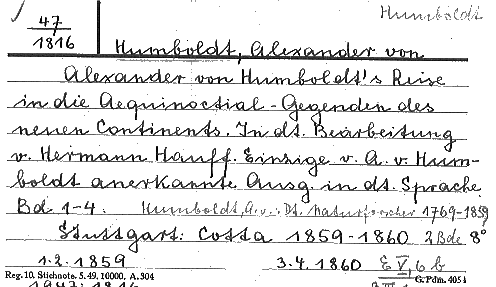 Humboldt
47
1816
Humboldt, Alexander von
Alexander von Humboldt's Reise
in die Aequinoctial-Gegenden des
neuen Continents. In dt. Bearbeitung
v. Hermann Hauff. Einzige v. A. v. Hum-
boldt anerkannte Ausg. in dt. Sprache.
Bd 1-4. Humboldt, A. v.: Dt. Naturforscher 1769-1859
Stuttgart: Cotta 1859-1860 2 Bde 8°
1.2. 1859 3.4. 1860 E V, 6 b
Reg. 10. Stichnote. 5. 49. 10000, A. 304 G. Pdm. 405
1947: 1816